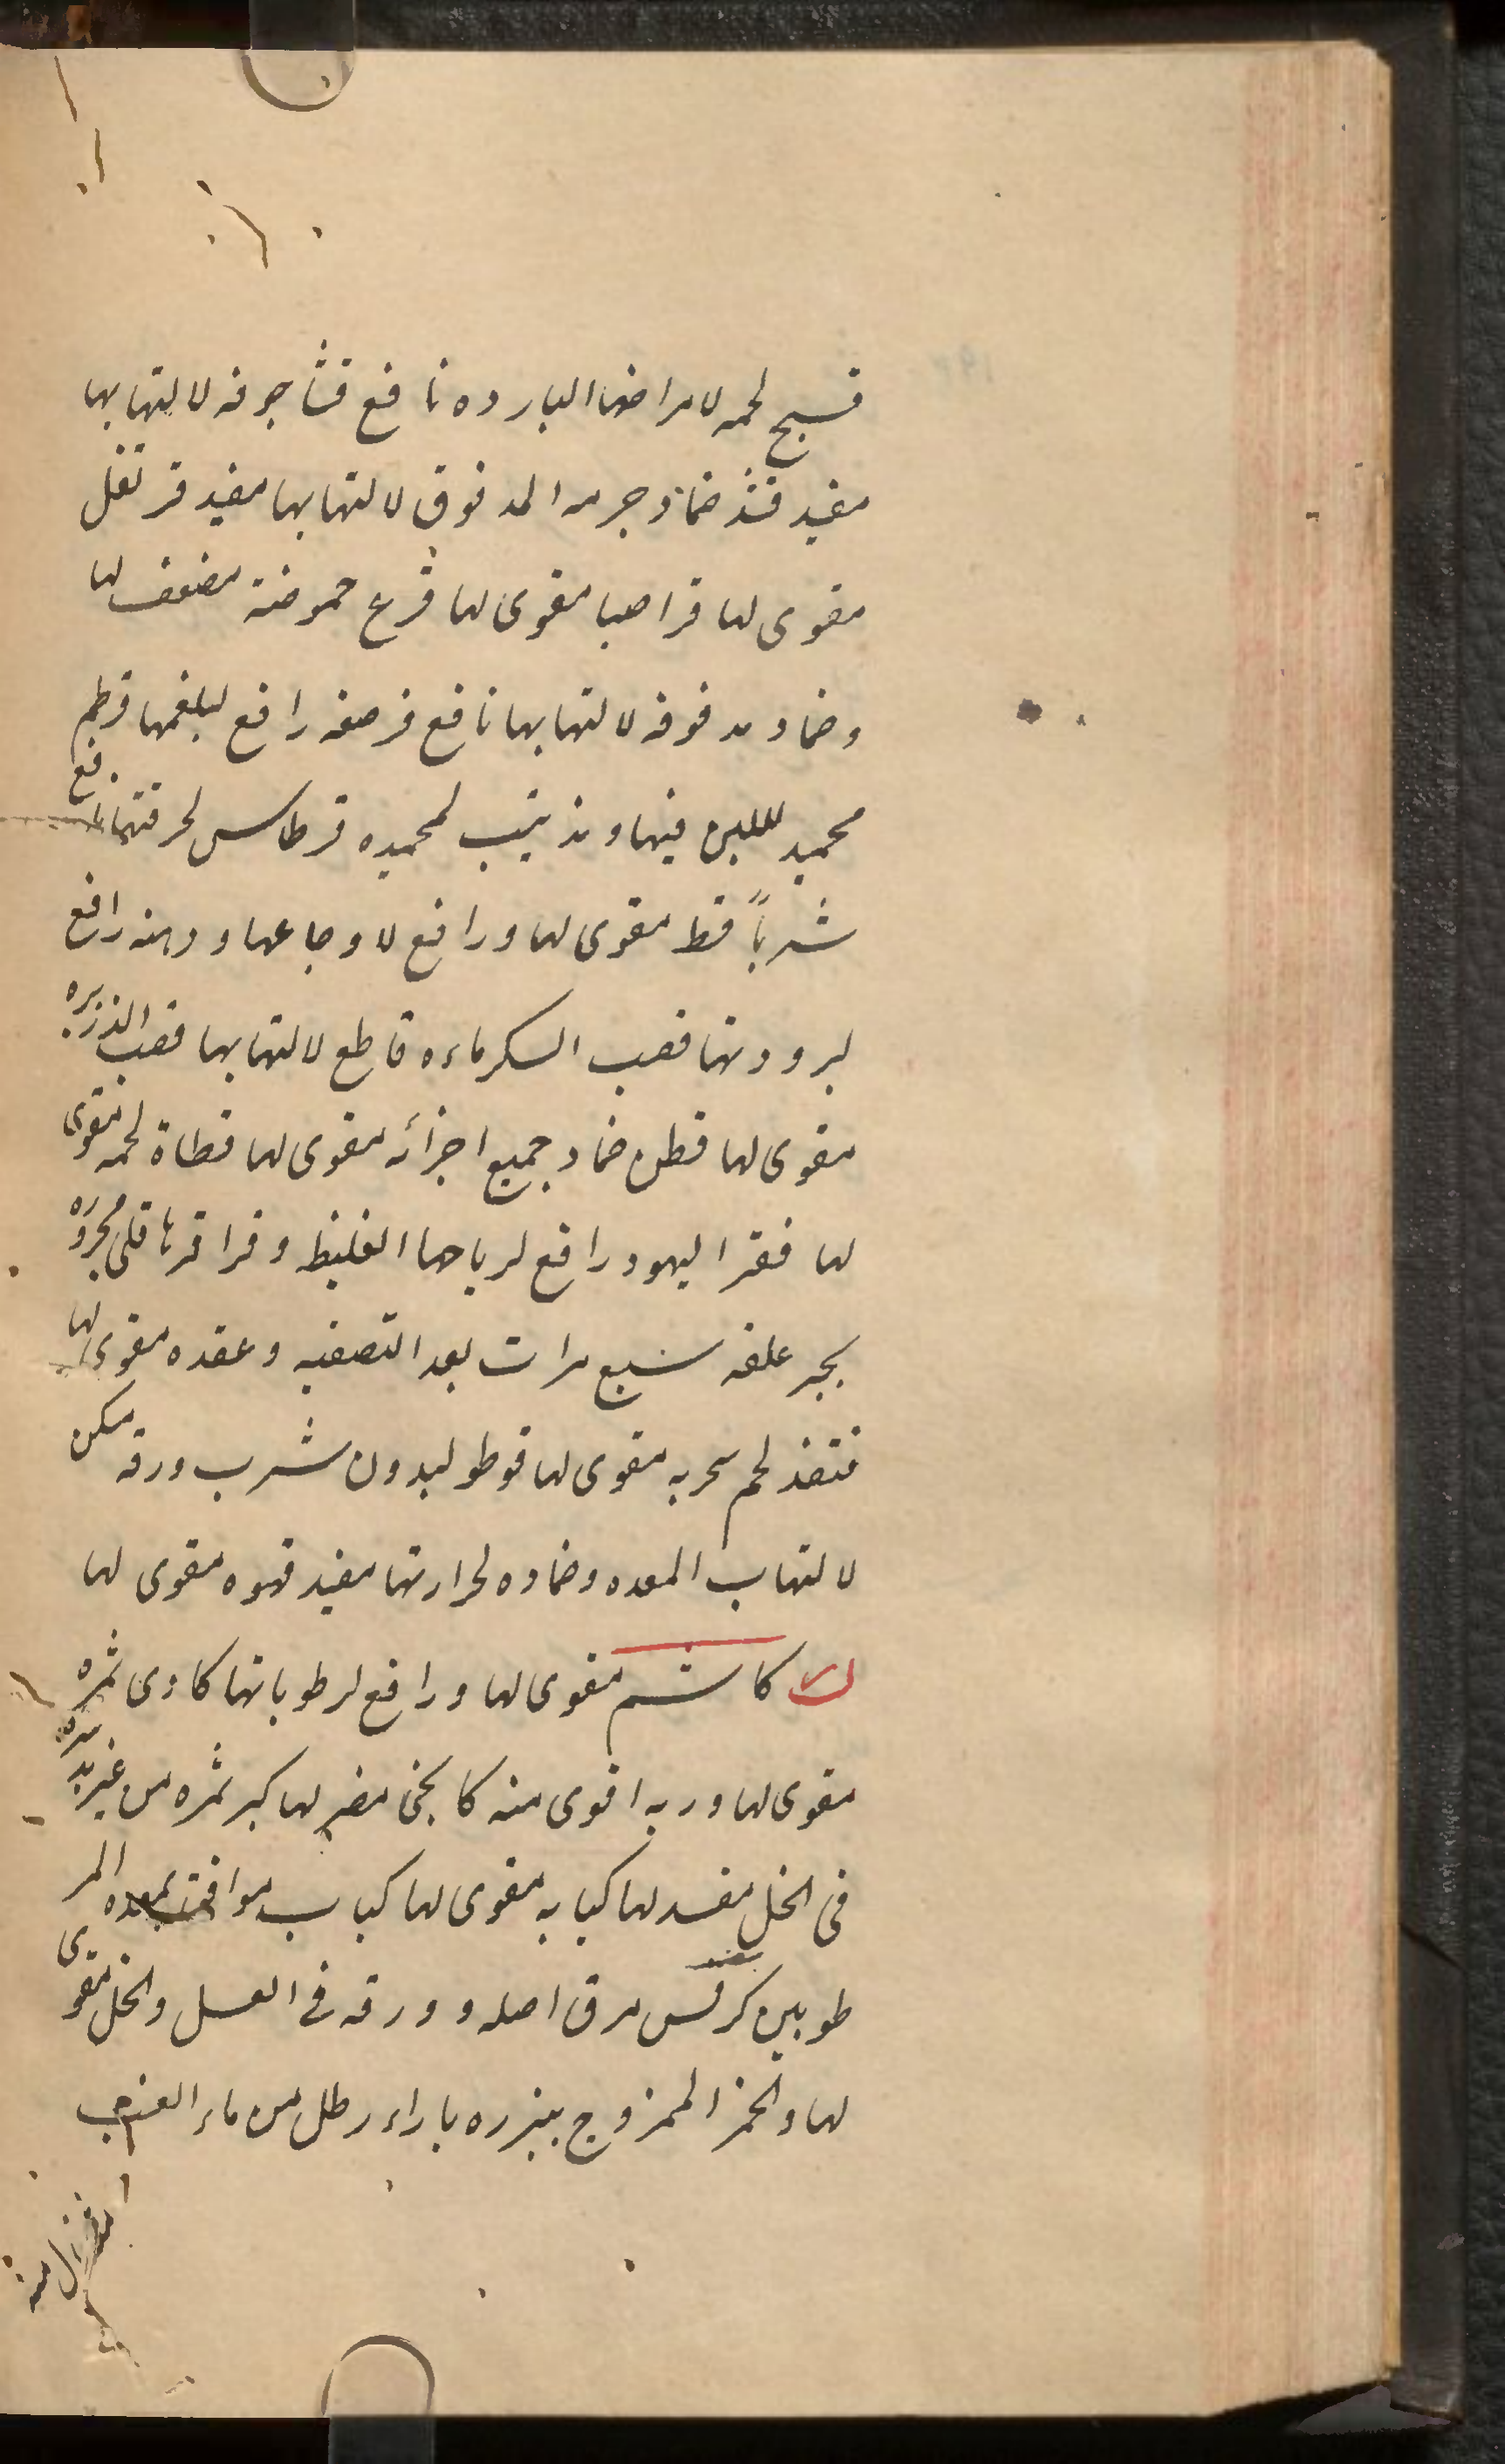 قبج لحمه لامراضها البارده نافع قثا جرمه لالتهابها
مفيد قثد ضماد جرمه المدقوق لالتهابها مفيد قرنفل
مقوى لها قراصيا مقوى لها قرع حموضة مضعف لها
وضماد مدقوقه لالتهابها نافع قرصعنه رافع لبلغمها قرطم
مجمد للبن فيها ومذيب لمجمده قرطاس لحرقتها نافع
شرباً قسط مقوى لها ورافع لاوجاعها ودهنه رافع
لبرودتها قصب السكر ماءه قاطع لالتهابها قصب الذريره
مقوى لها قطن ضماد جميع اجزائه مقوى لها قطاة لحمه مقوى
لها قفر اليهود رافع لرياحها الغليظ وقراقرها قلى
سبع مرات بعد التصفيه وعقده مقوى لها
قنفذ لحم بحريه مقوى لها قوطوليدون شرب ورقه مسكن
لالتهاب المعده وضماده لحرارتها مفيد قهوه مقوى لها
ك كاشم مقوى لها ورافع لرطوباتها كادى ثمره
مقوى لها وربه اقوى منه كاكنج مضر لها كبر ثمره من غير
فى الخل مفسد لها كبابه مقوى لها كباب موافق لمعده المر
طوبين كرفس مرق اصله وورقه فى العسل والخل مقوى
لها والخمر الممزوج ببزره رطل من ماء العنب